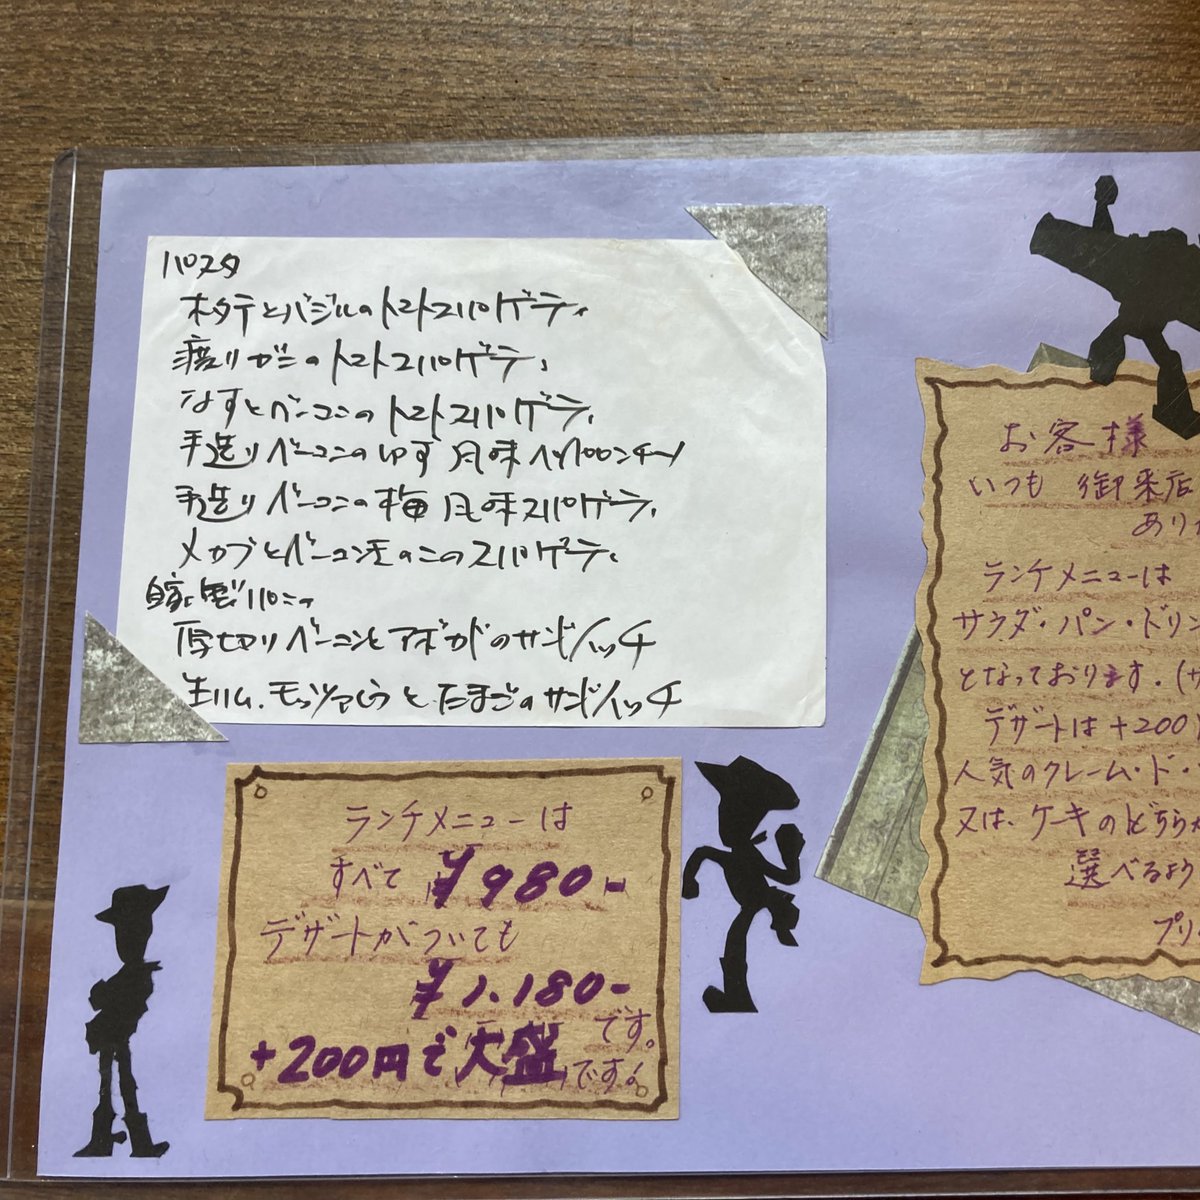 パスタ
ホタテとバジルのトマトスパゲティ
渡りガニのトマトスパゲティ
なすとベーコンのトマトスパゲティ
手造りベーコンのゆず風味ペペロンチーノ
手造りベーコンの梅風味スパゲティ
メカブとベーコンきのこのスパゲティ
自家製パニーニ
厚切りベーコンとアボガドのサンドイッチ
生ハム、モッツァレラとたまごのサンドイッチ
ランチメニューは
すべて ¥980-
デザートがついても
¥1.180-
です。
+200円で大盛です。
お客様
いつも 御来店
ありが
ランチメニューは
サラダ・パン・ドリン
となっております。(サ
デザートは+200
人気のクレーム・ド・
又は、ケーキのどちらか
選べるよう
プリ